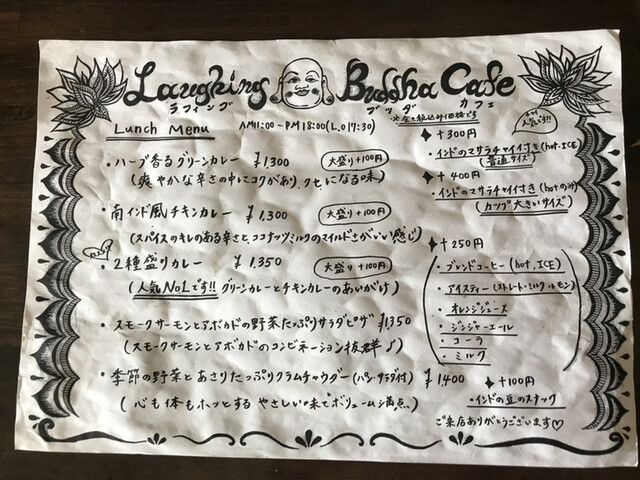 Laughing Buddha Cafe
ラフィング ブッダ カフェ
Lunch Menu AM11:00-PM18:00(L.O17:30)
・ハーブ香るグリーンカレー ¥1,300 大盛り+100円
(爽やかな辛さの中にコクがあり、クセになる味)
・南インド風チキンカレー ¥1,300 大盛り+100円
(スパイスのキレのある辛さと、ココナッツミルクのマイルドさがいい感じ)
・2種盛りカレー ¥1,350 大盛り+100円
(人気No1です!! グリーンカレーとチキンカレーのあいがけ)
・スモークサーモンとアボカドの野菜たっぷりサラダピザ ¥1,350
(スモークサーモンとアボカドのコンビネーション抜群♪)
・季節の野菜とあさりたっぷりクラムチャウダー(パン・サラダ付) ¥1,400
(心も体もホッとする やさしい味でボリューム満点)
※全て税込み価格です
+300円
人気です!!
・インドのマサラチャイ付き(hot,ICE)
(普通サイズ)
+400円
・インドのマサラチャイ付き(hotのみ)
(カップ大きいサイズ)
+250円
・ブレンドコーヒー(hot,ICE)
・アイスティー(ストレート・ミルク・レモン)
・オレンジジュース
・ジンジャーエール
・コーラ
・ミルク
+100円
・インドの豆のスナック
ご来店ありがとうございます♡